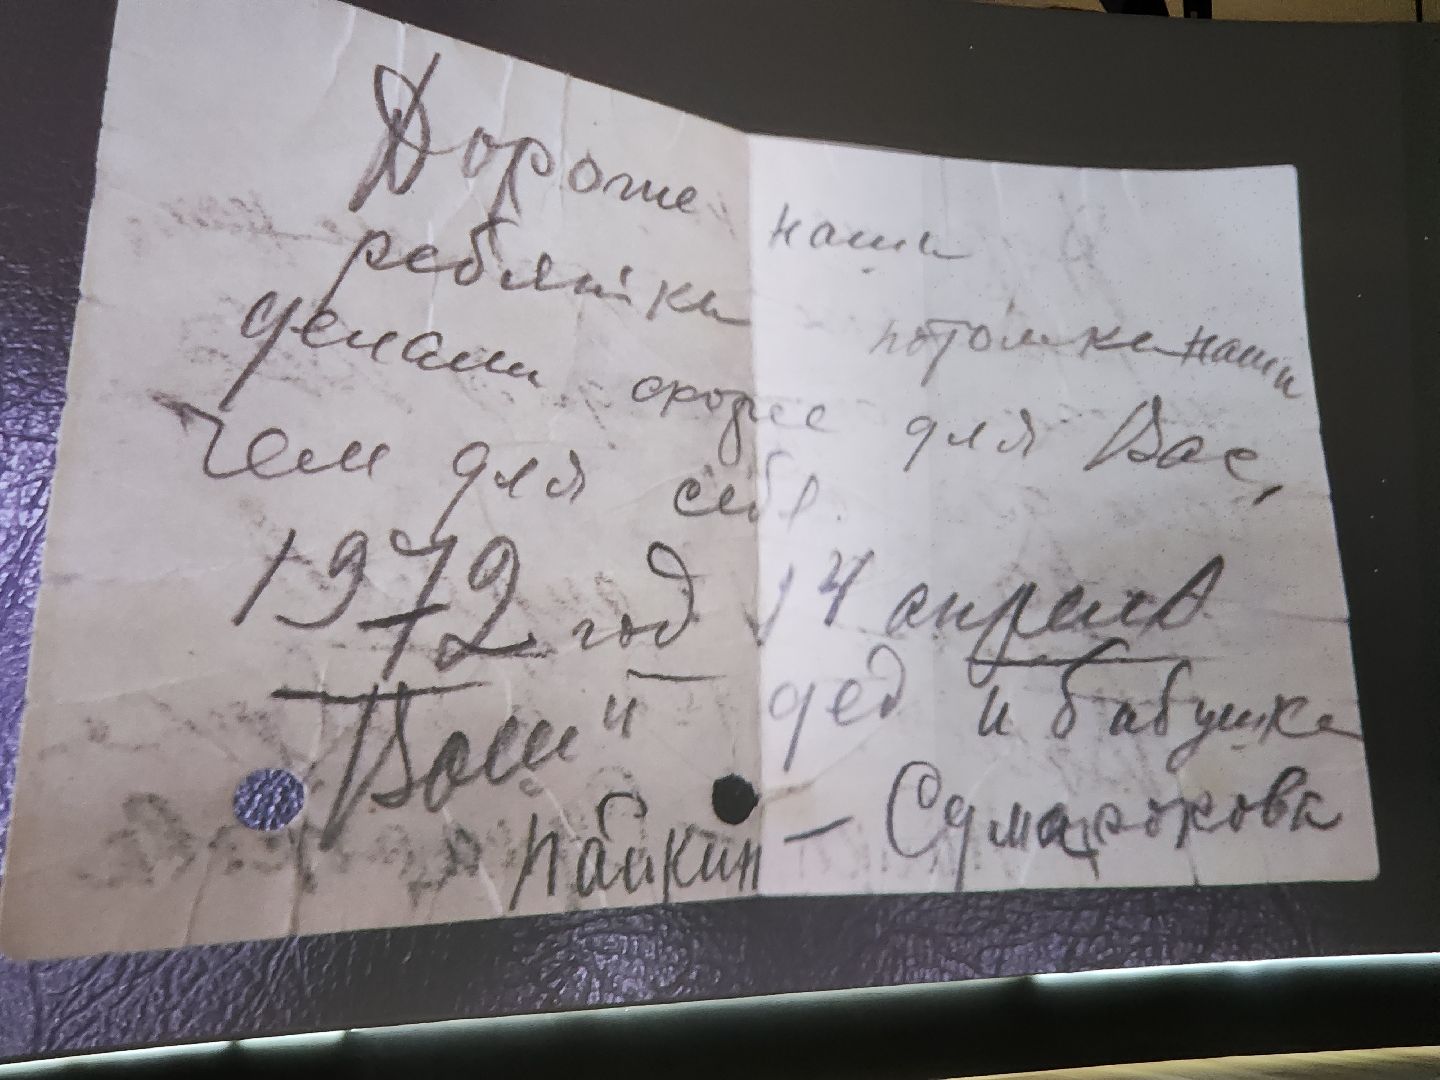 Дорогие наши
ребятки потомки наши
делали скорее для Вас,
Чем для себя.
1972 год 14 апреля
Ваши дед и бабушка
Пайкин – Сумароковы